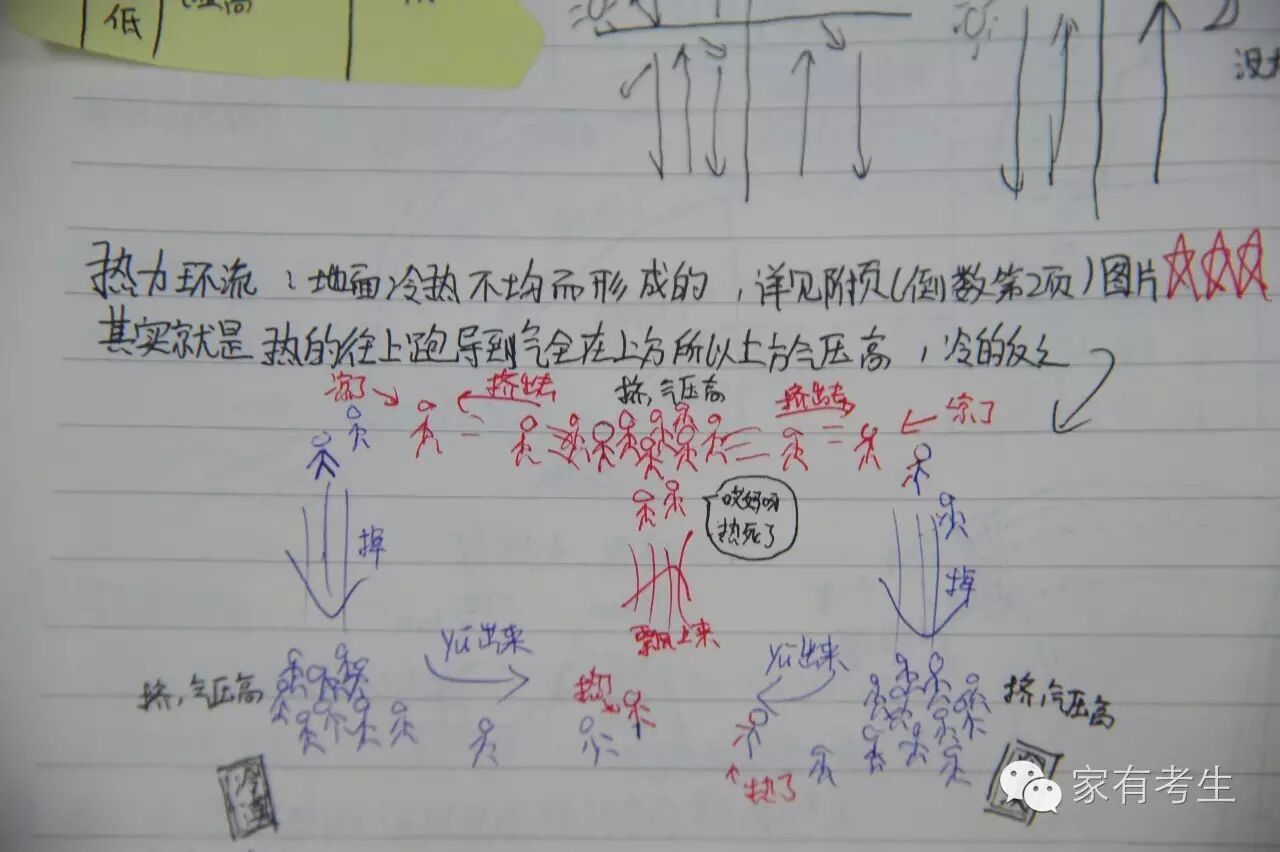 低
没
热力环流：地面冷热不均而形成的，详见附页(倒数第2页)图片
其实就是 热的往上跑导到气全在上方所以上方气压高，冷的反之
凉了
挤出去
挤，气压高
挤出去
凉了
哎妈呀
热死了
掉
掉
飘上来
yū出来
yū出来
挤，气压高
热
挤，气压高
热了
冷
家有考生